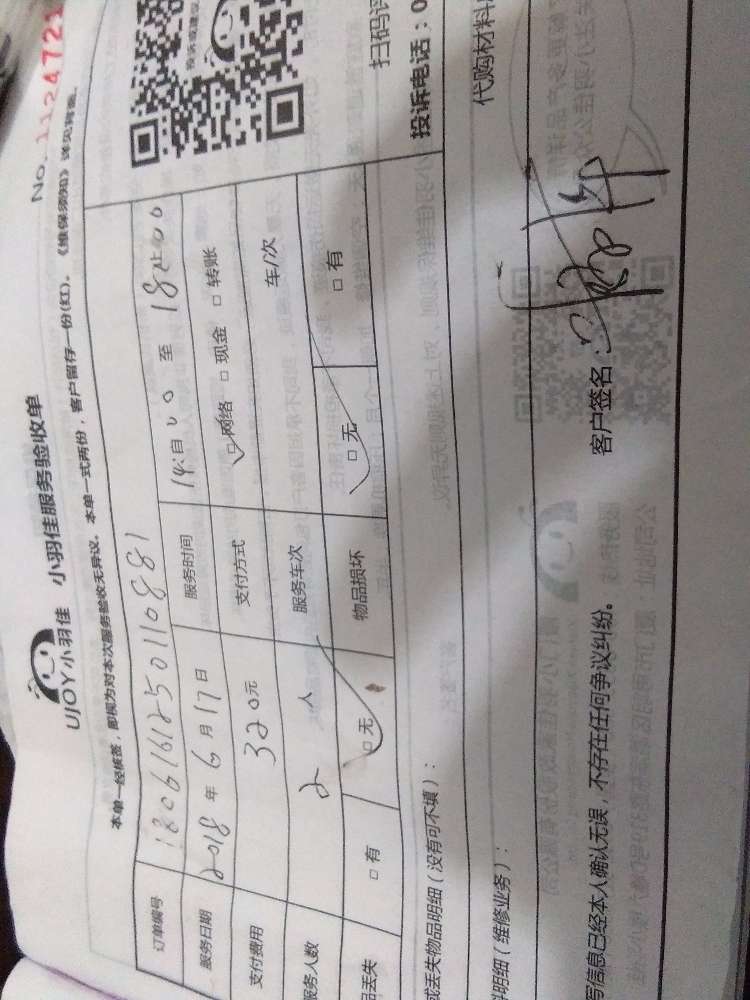 No. 1124721
UJOY小羽佳 小羽佳服务验收单
本单一经核签,即视为对本次服务验收无异议。本单一式两份,客户留存一份(红)。《维保须知》详见背面。
订单编号 180616125011088 1
服务日期 2018 年 6 月 17 日 服务时间 14:00 至 18:00
支付费用 320元 支付方式 网络 □ 现金 □ 转账
服务人数 2 人 服务车次 车/次
品丢失 □ 有 □ 无 物品损坏 □ 无 □ 有
扫码评
投诉电话:0
或丢失物品明细(没有可不填):
代购材料
料明细(维修业务):
写信息已经本人确认无误,不存在任何争议纠纷。 客户签名: